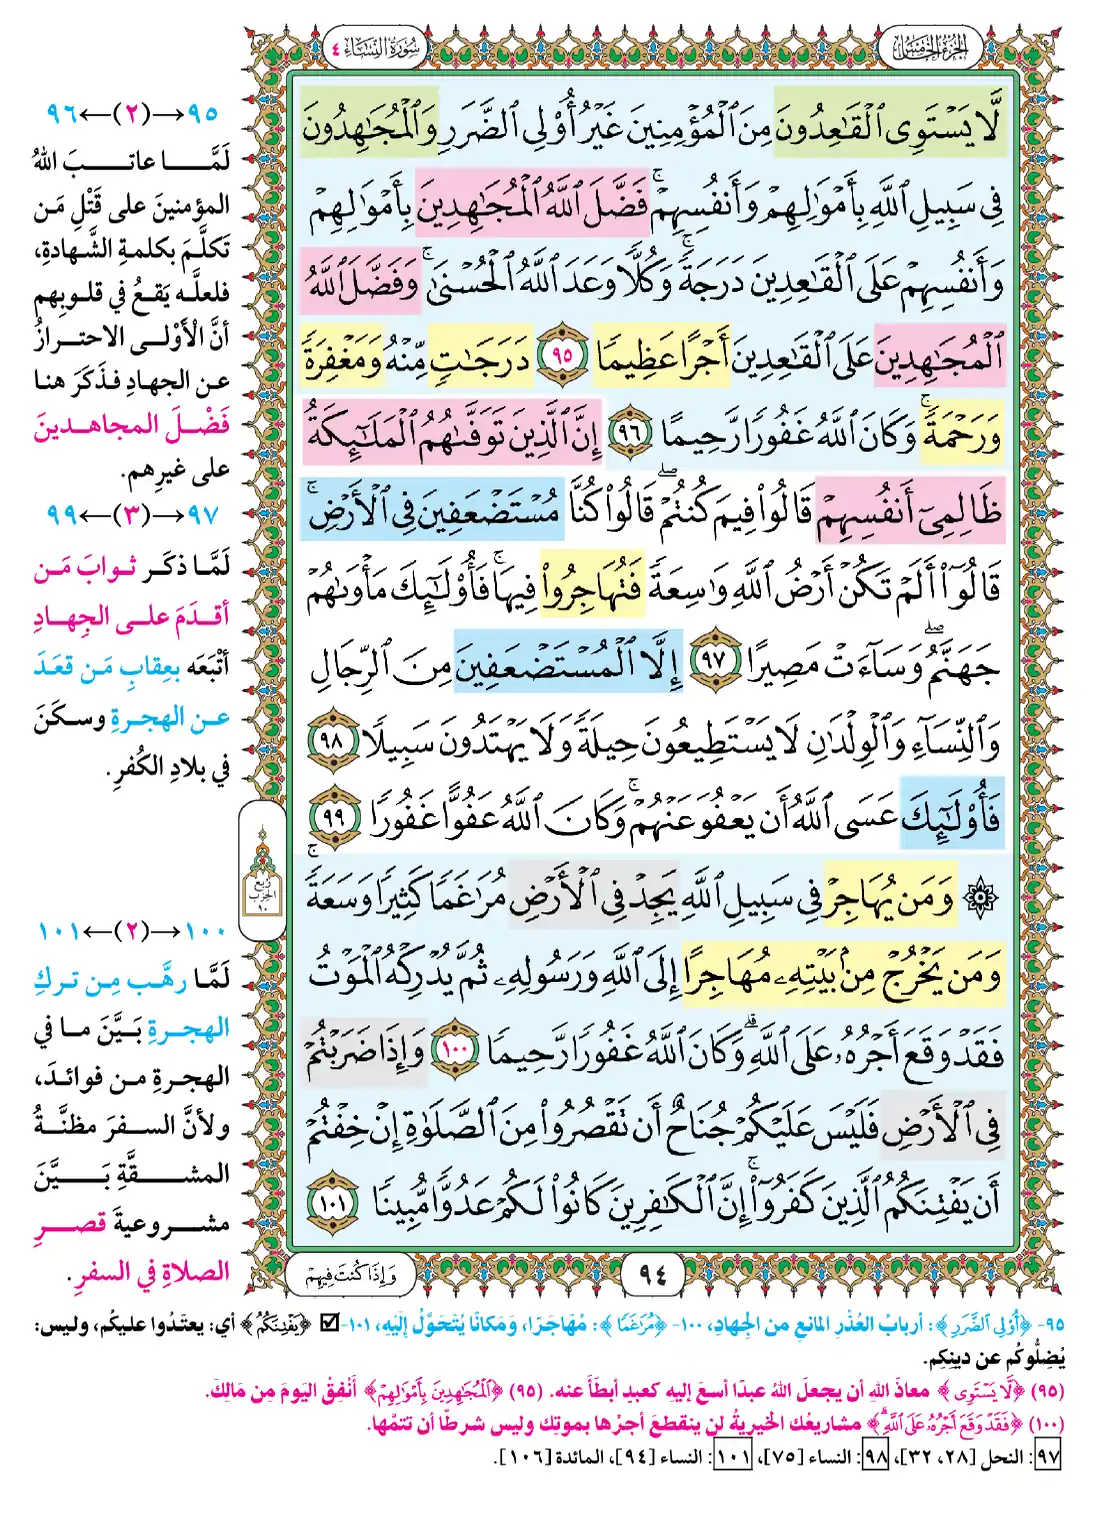 الجزء الخامس
سورة النساء ٤
لَّا يَسْتَوِى ٱلْقَـٰعِدُونَ مِنَ ٱلْمُؤْمِنِينَ غَيْرُ أُو۟لِى ٱلضَّرَرِ وَٱلْمُجَـٰهِدُونَ
فِى سَبِيلِ ٱللَّهِ بِأَمْوَٰلِهِمْ وَأَنفُسِهِمْ ۚ فَضَّلَ ٱللَّهُ ٱلْمُجَـٰهِدِينَ بِأَمْوَٰلِهِمْ
وَأَنفُسِهِمْ عَلَى ٱلْقَـٰعِدِينَ دَرَجَةً ۚ وَكُلًّا وَعَدَ ٱللَّهُ ٱلْحُسْنَىٰ ۚ وَفَضَّلَ ٱللَّهُ
ٱلْمُجَـٰهِدِينَ عَلَى ٱلْقَـٰعِدِينَ أَجْرًا عَظِيمًا ٩٥ دَرَجَـٰتٍ مِّنْهُ وَمَغْفِرَةً
وَرَحْمَةً ۚ وَكَانَ ٱللَّهُ غَفُورًا رَّحِيمًا ٩٦ إِنَّ ٱلَّذِينَ تَوَفَّىٰهُمُ ٱلْمَلَـٰٓئِكَةُ
ظَالِمِىٓ أَنفُسِهِمْ قَالُوا۟ فِيمَ كُنتُمْ ۖ قَالُوا۟ كُنَّا مُسْتَضْعَفِينَ فِى ٱلْأَرْضِ ۚ
قَالُوٓا۟ أَلَمْ تَكُنْ أَرْضُ ٱللَّهِ وَٰسِعَةً فَتُهَاجِرُوا۟ فِيهَا ۚ فَأُو۟لَـٰٓئِكَ مَأْوَىٰهُمْ
جَهَنَّمُ ۖ وَسَآءَتْ مَصِيرًا ٩٧ إِلَّا ٱلْمُسْتَضْعَفِينَ مِنَ ٱلرِّجَالِ
وَٱلنِّسَآءِ وَٱلْوِلْدَٰنِ لَا يَسْتَطِيعُونَ حِيلَةً وَلَا يَهْتَدُونَ سَبِيلًا ٩٨
فَأُو۟لَـٰٓئِكَ عَسَى ٱللَّهُ أَن يَعْفُوَ عَنْهُمْ ۚ وَكَانَ ٱللَّهُ عَفُوًّا غَفُورًا ٩٩
۞ وَمَن يُهَاجِرْ فِى سَبِيلِ ٱللَّهِ يَجِدْ فِى ٱلْأَرْضِ مُرَٰغَمًا كَثِيرًا وَسَعَةً ۚ
وَمَن يَخْرُجْ مِنۢ بَيْتِهِۦ مُهَاجِرًا إِلَى ٱللَّهِ وَرَسُولِهِۦ ثُمَّ يُدْرِكْهُ ٱلْمَوْتُ
فَقَدْ وَقَعَ أَجْرُهُۥ عَلَى ٱللَّهِ ۗ وَكَانَ ٱللَّهُ غَفُورًا رَّحِيمًا ١٠٠ وَإِذَا ضَرَبْتُمْ
فِى ٱلْأَرْضِ فَلَيْسَ عَلَيْكُمْ جُنَاحٌ أَن تَقْصُرُوا۟ مِنَ ٱلصَّلَوٰةِ إِنْ خِفْتُمْ
أَن يَفْتِنَكُمُ ٱلَّذِينَ كَفَرُوٓا۟ ۚ إِنَّ ٱلْكَـٰفِرِينَ كَانُوا۟ لَكُمْ عَدُوًّا مُّبِينًا ١٠١
٩٤
وَإِذَا كُنتَ فِيهِمْ
٩٥→(٢)←٩٦
لَمَّا عاتبَ اللهُ
المؤمنينَ على قَتْلِ مَن
تَكلَّمَ بكلمةِ الشَّهادةِ،
فلعلَّه يَقعُ في قلوبِهم
أنَّ الْأَوْلى الاحترازُ
عن الجهادِ فذَكَرَ هنا
فَضْلَ المجاهدينَ
على غيرِهم.
٩٧→(٣)←٩٩
لَمَّا ذكَر ثوابَ مَن
أقدَمَ على الجِهادِ
أتْبَعَه بعِقابِ مَن قعَدَ
عن الهجرةِ وسكَنَ
في بلادِ الكُفرِ.
ربع
الحزب
١٠
١٠٠→(٢)←١٠١
لَمَّا رهَّب مِن تركِ
الهجرةِ بَيَّنَ ما في
الهجرةِ من فوائدَ،
ولأنَّ السفرَ مظنَّةُ
المشقَّةِ بَيَّنَ
مشروعيةَ قصرِ
الصلاةِ في السفرِ.
٩٥- ﴿أُوْلِى ٱلضَّرَرِ﴾: أربابُ العُذْرِ المانعِ من الجهادِ، ١٠٠- ﴿مُرَٰغَمًا﴾: مُهَاجَرًا، وَمكانًا يُتَحَوَّلُ إِلَيْهِ، ١٠١- ☑ ﴿يَفْتِنَكُمُ﴾ أي: يعتَدُوا عليكُم، وليس:
يُضِلُّوكُم عن دينِكِم.
(٩٥) ﴿لَّا يَسْتَوِى﴾ معاذَ اللهِ أن يجعلَ اللهُ عبدًا أسرعَ إليه كعبدٍ أبطَأَ عنه. (٩٥) ﴿ٱلْمُجَـٰهِدِينَ بِأَمْوَٰلِهِمْ﴾ أَنْفِقْ اليَومَ مِن مَالِكَ.
(١٠٠) ﴿فَقَدْ وَقَعَ أَجْرُهُ عَلَى ٱللَّهِ ۗ﴾ مشاريعُك الخيريةُ لن ينقطعَ أجرُها بموتِك وليس شرطًا أن تتمَّها.
٩٧: النحل [٢٨، ٣٢]، ٩٨: النساء [٧٥]، ١٠١: النساء [٩٤]، المائدة [١٠٦].